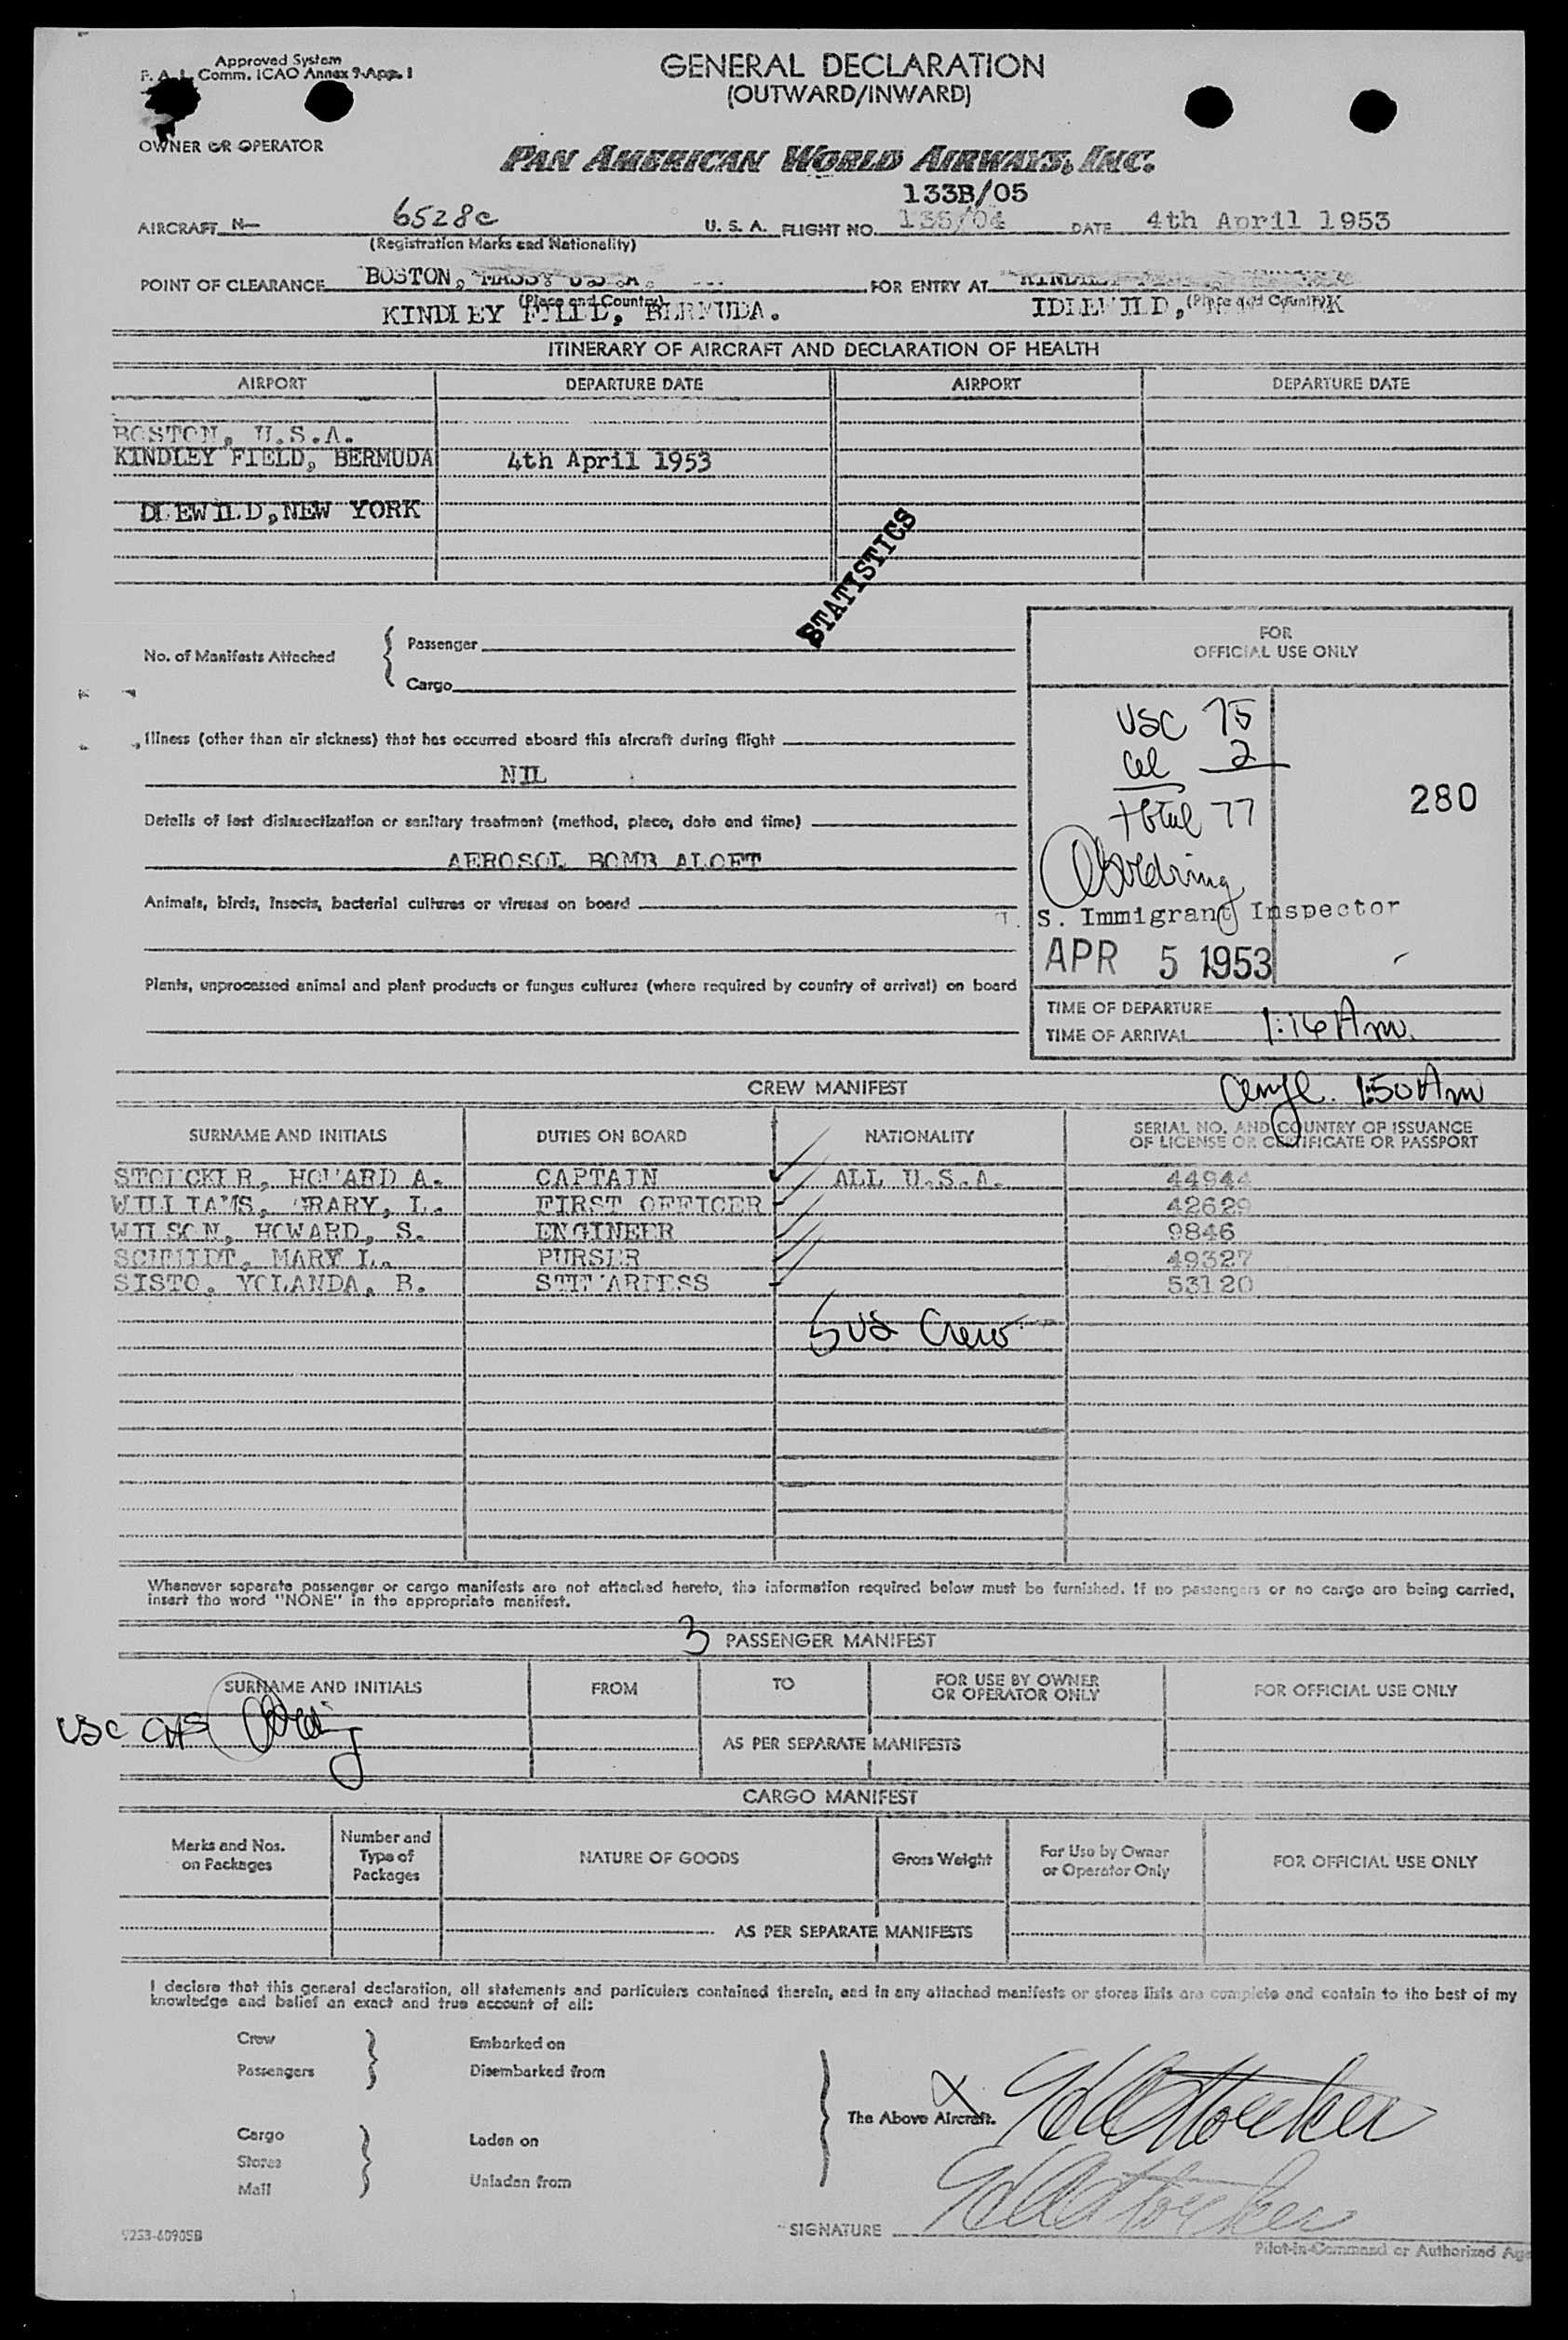 Approved System
F. A. L. Comm. ICAO Annex 9-App. 1
GENERAL DECLARATION
(OUTWARD/INWARD)
OWNER OR OPERATOR
PAN AMERICAN WORLD AIRWAYS, INC.
133B/05
AIRCRAFT N- 6528c U. S. A. FLIGHT NO. DATE 4th April 1953
(Registration Marks and Nationality)
POINT OF CLEARANCE BOSTON, MASS. U.S.A. FOR ENTRY AT
(Place and Country) (Place and Country)
KINDLEY FIELD, BERMUDA. IDLEWILD, NEW YORK
ITINERARY OF AIRCRAFT AND DECLARATION OF HEALTH
AIRPORT DEPARTURE DATE AIRPORT DEPARTURE DATE
BOSTON, U.S.A.
KINDLEY FIELD, BERMUDA 4th April 1953
IDLEWILD, NEW YORK
STATISTICS
No. of Manifests Attached { Passenger
Cargo
FOR
OFFICIAL USE ONLY
USC 75
2
total 77
280
U. S. Immigrant Inspector
APR 5 1953
TIME OF DEPARTURE
TIME OF ARRIVAL 1:16 Am.
Illness (other than air sickness) that has occurred aboard this aircraft during flight
NIL
Details of last disinsectization or sanitary treatment (method, place, date and time)
AEROSOL BOMB ALOFT
Animals, birds, insects, bacterial cultures or viruses on board
Plants, unprocessed animal and plant products or fungus cultures (where required by country of arrival) on board
CREW MANIFEST
1:50 Am
SURNAME AND INITIALS DUTIES ON BOARD NATIONALITY SERIAL NO. AND COUNTRY OF ISSUANCE
OF LICENSE OR CERTIFICATE OR PASSPORT
STOUCKER, HOWARD A. CAPTAIN ALL U.S.A. 44944
WILLIAMS, L. FIRST OFFICER 42629
WILSON, HOWARD, S. ENGINEER 9846
SCHMIDT, MARY L. PURSER 49327
SISTO, YOLANDA, B. STEWARDESS 53120
5 US Crew
Whenever separate passenger or cargo manifests are not attached hereto, the information required below must be furnished. If no passengers or no cargo are being carried,
insert the word "NONE" in the appropriate manifest.
3 PASSENGER MANIFEST
SURNAME AND INITIALS FROM TO FOR USE BY OWNER
OR OPERATOR ONLY FOR OFFICIAL USE ONLY
USC
AS PER SEPARATE MANIFESTS
CARGO MANIFEST
Marks and Nos.
on Packages Number and
Type of
Packages NATURE OF GOODS Gross Weight For Use by Owner
or Operator Only FOR OFFICIAL USE ONLY
AS PER SEPARATE MANIFESTS
I declare that this general declaration, all statements and particulars contained therein, and in any attached manifests or stores lists are complete and contain to the best of my
knowledge and belief an exact and true account of all:
Crew Embarked on
Passengers Disembarked from
The Above Aircraft.
Cargo Laden on
Stores
Mail Unladen from
SIGNATURE
Pilot-in-Command or Authorized Age
9253-60905B